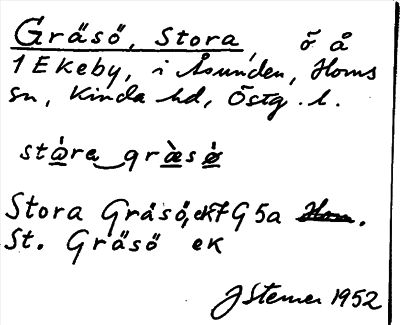 Gräsö, Stora, ö å
1 Ekeby, i Åsunden, Horns
sn, Kinda hd, Östg. l.
stàra gràsö
Stora Gräsö, ekf G 5a
St. Gräsö ek
J Sterner 1952